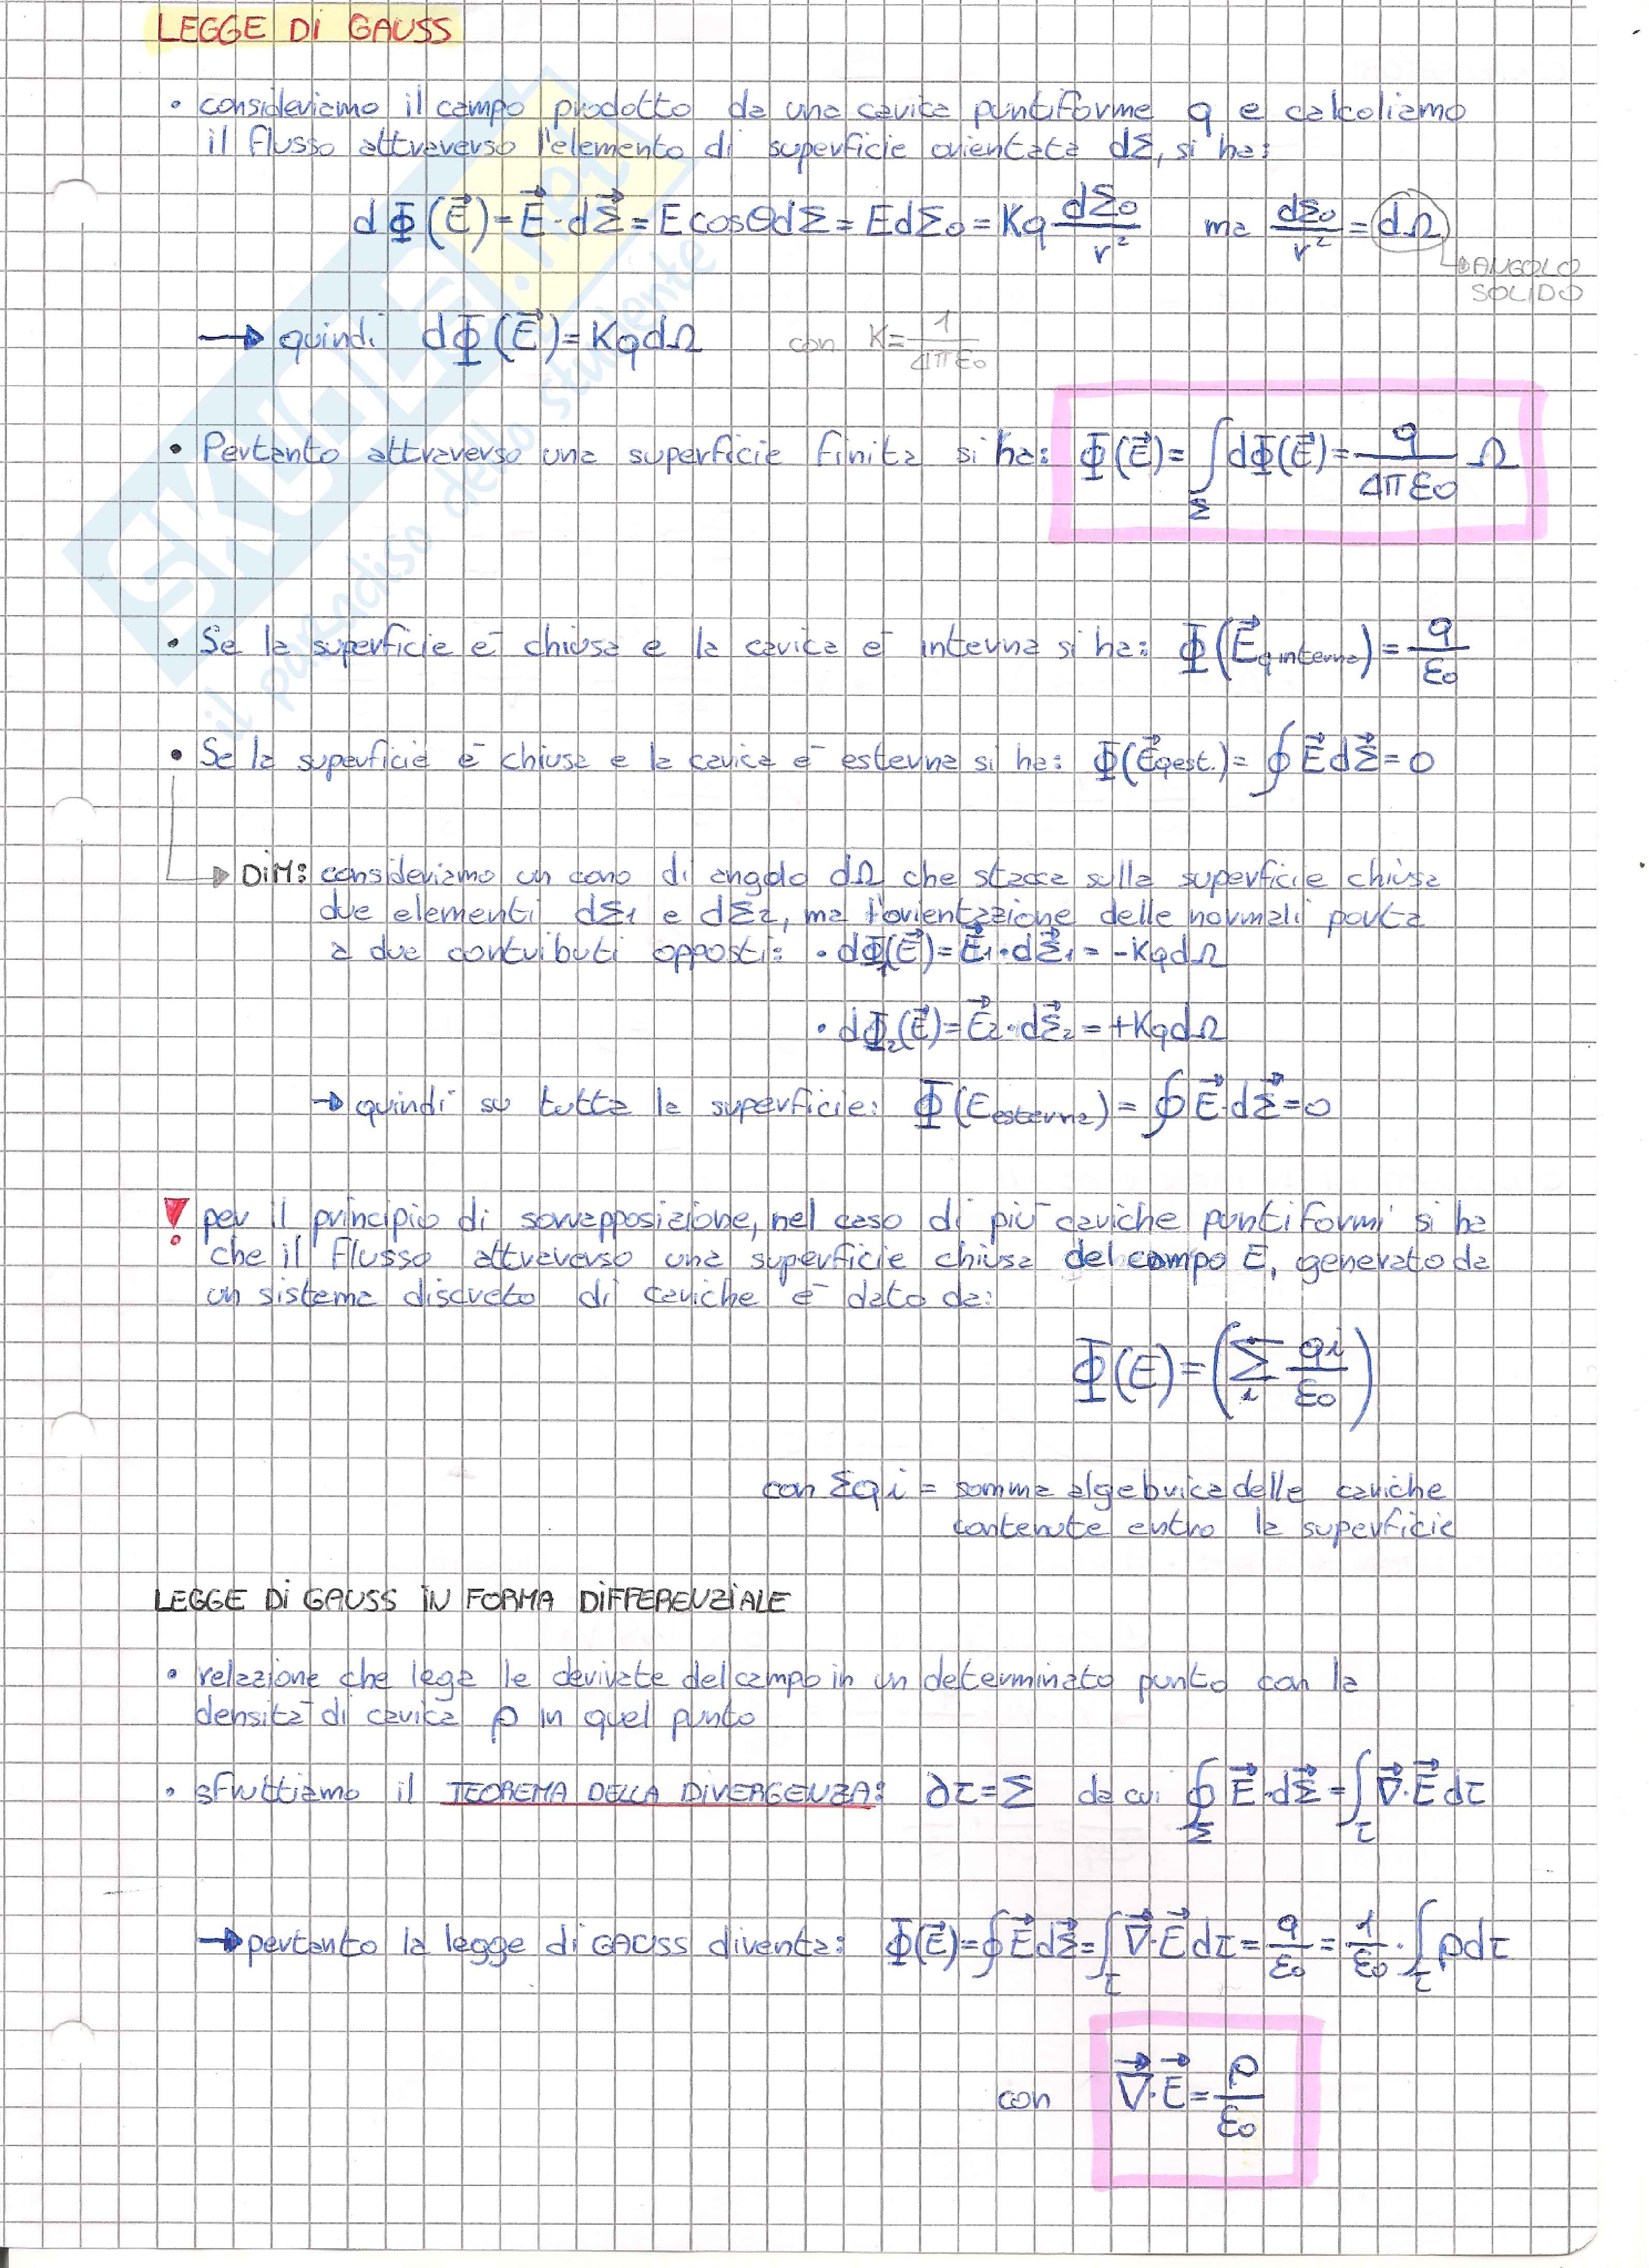 LEGGE Di GAUSS
• consideriamo il campo prodotto da una carica puntiforme q e calcoliamo
il flusso attraverso l'elemento di superficie orientata dΣ, si ha:
dΦ(E⃗)=E⃗·dΣ⃗=EcosθdΣ=EdΣ₀=Kq dΣ₀/r² ma dΣ₀/r²=dΩ
→ANGOLO
SOLIDO
→ quindi dΦ(E⃗)=KqdΩ con K=1/4πε₀
• Pertanto attraverso una superficie finita si ha: Φ(E⃗)=∫_Σ dΦ(E⃗)=q/4πε₀ Ω
• Se la superficie è chiusa e la carica è interna si ha: Φ(E⃗q interna)=q/ε₀
• Se la superficie è chiusa e la carica è esterna si ha: Φ(E⃗qest.)=∮E⃗dΣ⃗=0
→ DIM: consideriamo un cono di angolo dΩ che stacca sulla superficie chiusa
due elementi dΣ₁ e dΣ₂, ma l'orientazione delle normali porta
a due contributi opposti: • dΦ₁(E⃗)=E⃗₁·dΣ⃗₁=-KqdΩ
• dΦ₂(E⃗)=E⃗₂·dΣ⃗₂=+KqdΩ
→ quindi su tutta la superficie: Φ(Eesterna)=∮E⃗·dΣ⃗=0
! per il principio di sovrapposizione, nel caso di più cariche puntiformi si ha
che il flusso attraverso una superficie chiusa del campo E, generato da
un sistema discreto di cariche è dato da:
Φ(E)=(Σ_i qi/ε₀)
con Σqi = somma algebrica delle cariche
contenute entro la superficie
LEGGE Di GAUSS iN FORMA DiFFERENZIALE
• relazione che lega le derivate del campo in un determinato punto con la
densità di carica ρ in quel punto
• sfruttiamo il TEOREMA DELLA DIVERGENZA: ∂τ=Σ da cui ∮_Σ E⃗·dΣ⃗=∫_τ ∇⃗·E⃗dτ
→ pertanto la legge di GAUSS diventa: Φ(E⃗)=∮E⃗dΣ⃗=∫_τ ∇⃗·E⃗dτ=q/ε₀=1/ε₀·∫_τ ρdτ
con ∇⃗·E⃗=ρ/ε₀
SKUOLA.net
il paradiso dello studente